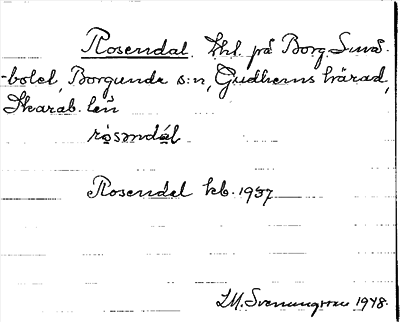 Rosendal. lht. på Borg. Smås-
-bolet, Borgunda s:n, Gudhems härad,
Skarab. län
rosəndál
Rosendal kb. 1937
I.M. Svenungsson 1948.